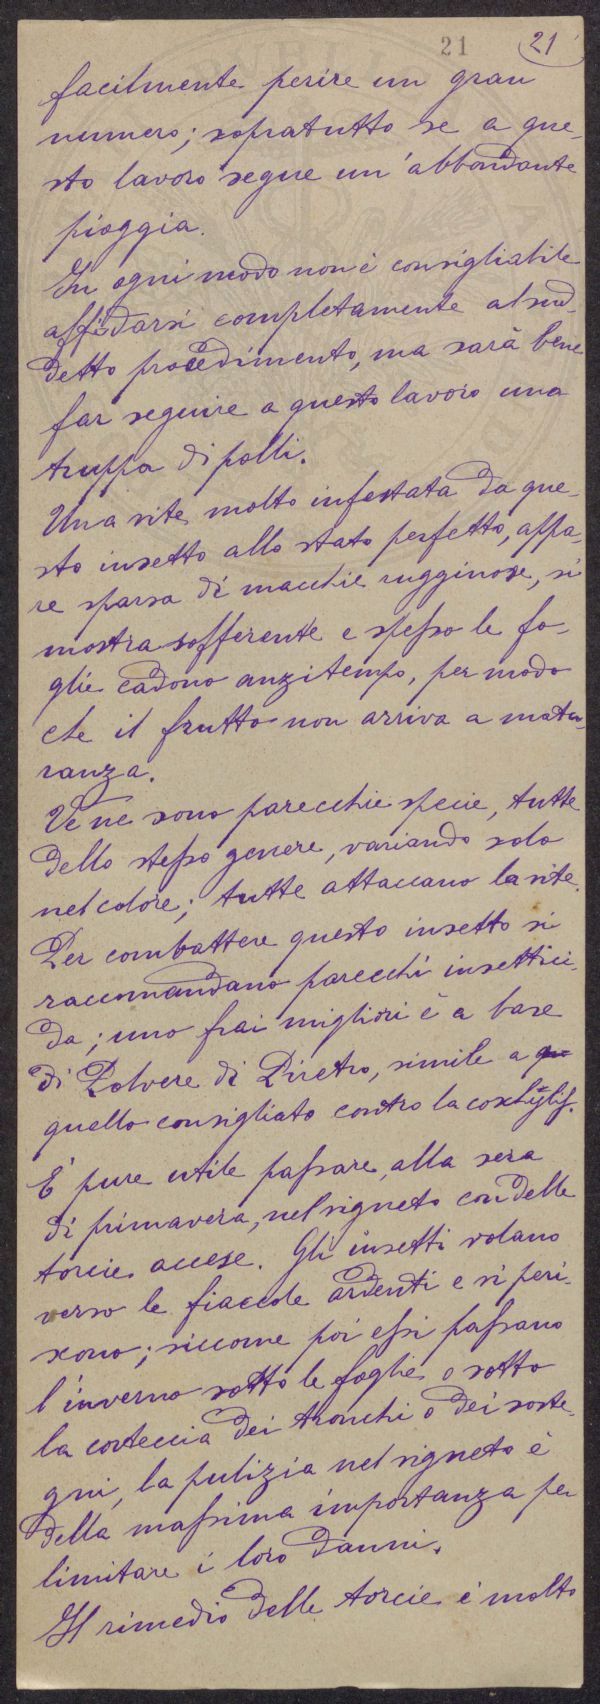 21 21
facilmente perire un gran
numero; sopratutto se a que-
sto lavoro segue un'abbondante
pioggia.
In ogni modo non è consigliabile
affidarsi completamente al sud-
detto procedimento, ma sarà bene
far seguire a questo lavoro una
truppa di polli.
Una vite molto infestata da que-
sto insetto allo stato perfetto, appa-
re sparsa di macchie rugginose, si
mostra sofferente e spesso le fo-
glie cadono anzitempo, per modo
che il frutto non arriva a matu-
ranza.
Ve ne sono parecchie specie, tutte
dello stesso genere, variando solo
nel colore; tutte attaccano la vite.
Per combattere questo insetto si
raccomandano parecchi insettici-
da; uno frai migliori è a base
di Polvere di Piretro, simile a
quello consigliato contro la cochylis.
E' pure utile passare, alla sera
di primavera, nel vigneto con delle
torcie accese. Gli insetti volano
verso le fiaccole ardenti e vi peri-
scono; siccome poi essi passano
l'inverno sotto le foglie o sotto
la corteccia dei tronchi o dei soste-
gni, la pulizia nel vigneto è
della massima importanza per
limitare i loro danni.
Il rimedio delle torcie è molto